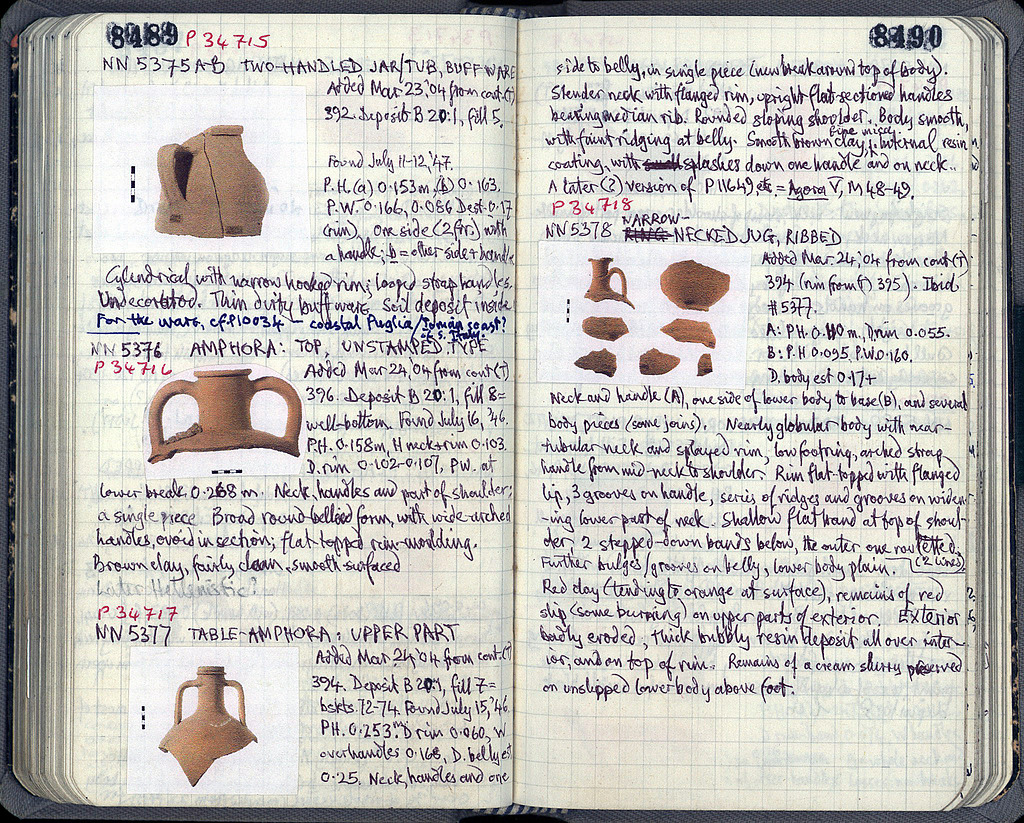 8489 P 34715
NN 5375 A-B TWO-HANDLED JAR/TUB, BUFF WARE
Added Mar 23,'04 from cont.(T)
392. Deposit B 20:1, fill 5.
Found July 11-12,'47.
P.H. (a) 0.153m, (b) 0.163.
P.W. 0.166, 0.086 Dest. 0.17
(rim). one side (2 fr.) with
a handle; b = other side + handle
Cylindrical with narrow hooked rim; looped strap handles.
Undecorated. Thin dusty buff ware. Soil deposit inside
For the ware, cf. P10034 – coastal Puglia/Ionian coast?
of S. Italy.
NN 5376 AMPHORA: TOP, UNSTAMPED TYPE
P 34716
Added Mar 24,'04 from cont(T)
396. Deposit B 20:1, fill 8=
well-bottom. Found July 16,'46.
PH. 0.158m, H neck+rim 0.103.
D. rim 0.102-0.107, PW. at
lower break 0.268 m. Neck, handles and part of shoulder;
a single piece. Broad round-bellied form, with wide-arched
handles, ovoid in section; flat-topped rim-moulding.
Brown clay, fairly clean, smooth surfaced
Later Hellenistic?
P 34717
NN 5377 TABLE-AMPHORA: UPPER PART
Added Mar 24,'04 from cont.(T)
394. Deposit B 20:1, fill 7=
bskts. 72-74. Found July 15,'46.
PH. 0.253m. D rim 0.060, W
overhandles 0.168, D. belly est
0.25. Neck, handles and one
8490
side to belly, in single piece (new break around top of body).
Slender neck with flanged rim, upright flat-sectioned handles
bearing median rib. Rounded sloping shoulder. Body smooth,
with faint ridging at belly. Smooth brown clay, fine micey. Internal resin
coating, with splashes down one handle and on neck.
A later (?) version of P11649 = Agora V, M 48-49.
P 34718
NN 5378 NARROW-NECKED JUG, RIBBED
Added Mar 24,'04 from cont(T)
394 (rim from (T) 395). Ibid
#5377.
A: PH. 0.110 m, D.rim 0.055.
B: P.H 0.095, P.W. 0.160,
D. body est 0.17+
Neck and handle (A), one side of lower body to base (B), and several
body pieces (some joins). Nearly globular body with near-
-tubular neck and splayed rim, low footring, arched strap
handle from mid-neck to shoulder. Rim flat-topped with flanged
lip, 3 grooves on handle, series of ridges and grooves on widen-
-ing lower part of neck. Shallow flat band at top of shoul-
der, 2 stepped-down bands below, the outer one rouletted.
(2 lines).
Further bulges/grooves on belly, lower body plain.
Red clay (tending to orange at surface), remains of red
slip (some burning) on upper parts of exterior. Exterior
badly eroded, thick bubbly resin deposit all over inter-
ior, and on top of rim. Remains of a cream slurry preserved
on unslipped lower body above foot.